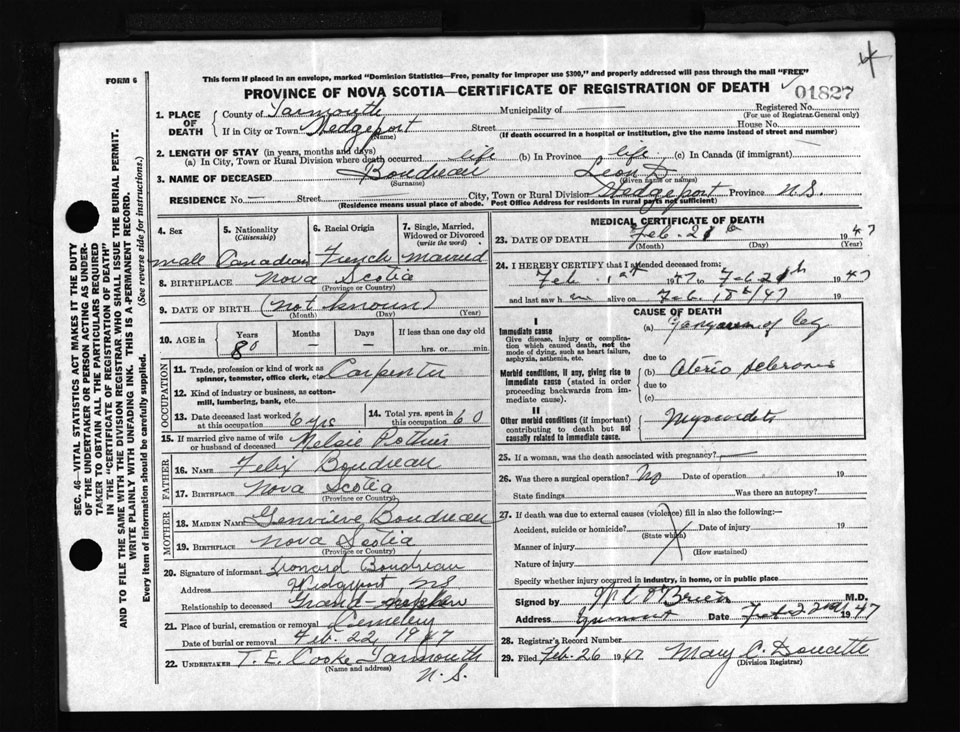 4
FORM 6
This form if placed in an envelope, marked "Dominion Statistics—Free, penalty for improper use $300," and properly addressed will pass through the mail "FREE"
PROVINCE OF NOVA SCOTIA—CERTIFICATE OF REGISTRATION OF DEATH
01827
SEC. 46—VITAL STATISTICS ACT MAKES IT THE DUTY
OF THE UNDERTAKER OR PERSON ACTING AS UNDER-
TAKER TO OBTAIN ALL THE PARTICULARS REQUIRED
IN THE "CERTIFICATE OF REGISTRATION OF DEATH"
AND TO FILE THE SAME WITH THE DIVISION REGISTRAR WHO SHALL ISSUE THE BURIAL PERMIT.
WRITE PLAINLY WITH UNFADING INK. THIS IS A PERMANENT RECORD.
Every item of information should be carefully supplied. (See reverse side for instructions.)
1. PLACE OF DEATH
County of Yarmouth Municipality of — Registered No.
(For use of Registrar General only)
If in City or Town Wedgeport Street House No.
(Name) (If death occurred in a hospital or institution, give the name instead of street and number)
2. LENGTH OF STAY (in years, months and days)
(a) In City, Town or Rural Division where death occurred life (b) In Province life (c) In Canada (if immigrant)
3. NAME OF DECEASED Boudreau Leon D.
(Surname) (Given name or names)
RESIDENCE No. — Street City, Town or Rural Division Wedgeport Province N.S.
(Residence means usual place of abode. Post Office Address for residents in rural parts not sufficient)
4. Sex
5. Nationality (Citizenship)
6. Racial Origin
7. Single, Married, Widowed or Divorced (write the word)
male Canadian French Married
8. BIRTHPLACE Nova Scotia
(Province or Country)
9. DATE OF BIRTH (not known)
(Month) (Day) (Year)
10. AGE in Years Months Days If less than one day
80 — — hrs. or min.
OCCUPATION
11. Trade, profession or kind of work as spinner, teamster, office clerk, etc. Carpenter
12. Kind of industry or business, as cotton-mill, lumbering, bank, etc.
13. Date deceased last worked at this occupation 6 yrs
14. Total yrs. spent in this occupation 60
15. If married give name of wife or husband of deceased
FATHER
16. NAME Felix Boudreau
17. BIRTHPLACE Nova Scotia
(Province or Country)
MOTHER
18. MAIDEN NAME Genevieve Boudreau
19. BIRTHPLACE Nova Scotia
(Province or Country)
20. Signature of informant Leonard Boudreau
Address Wedgeport NS
Relationship to deceased Grand-
21. Place of burial, cremation or removal Cemetery
Date of burial or removal Feb. 22, 1947
22. UNDERTAKER T. E. Cooke Yarmouth
(Name and address) N.S.
MEDICAL CERTIFICATE OF DEATH
23. DATE OF DEATH Feb. 1947
(Month) (Day) (Year)
24. I HEREBY CERTIFY that I attended deceased from:
Feb. 1st 1947 Feb 1947
and last saw h im alive on Feb. 18th/47 19
CAUSE OF DEATH
I
Immediate cause
Give disease, injury or complication which caused death, not the mode of dying, such as heart failure, asphyxia, asthenia, etc.
(a) Gangrene of leg
due to
Morbid conditions, if any, giving rise to immediate cause (stated in order proceeding backwards from immediate cause).
(b) Aterio sclerosis
due to
(c)
II
Other morbid conditions (if important) contributing to death but not causally related to immediate cause.
Myocarditis
25. If a woman, was the death associated with pregnancy? —
26. Was there a surgical operation? No Date of operation 19
State findings Was there an autopsy?
27. If death was due to external causes (violence) fill in also the following:—
Accident, suicide or homicide? Date of injury 19
(State which)
Manner of injury
(How sustained)
Nature of injury
Specify whether injury occurred in industry, in home, or in public place
Signed by O'Brien M.D.
Address Date Feb 22nd 1947
28. Registrar's Record Number
29. Filed Feb. 26 1947 Mary C. Doucette
(Division Registrar)